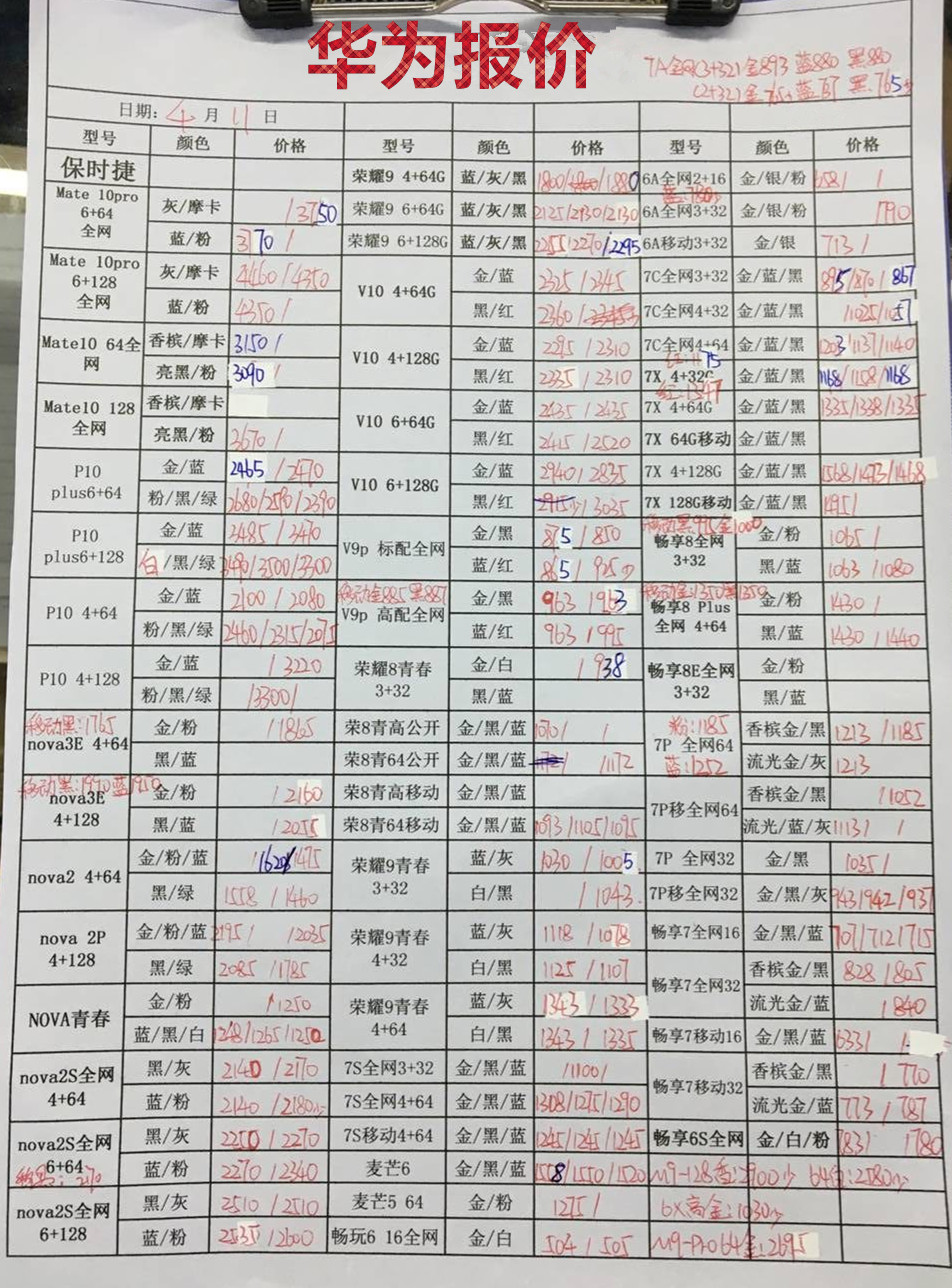 华为报价
7A全网(3+32)金893 蓝880 黑880
(2+32)金765 蓝 黑:765
日期: 4 月 11 日
型号 颜色 价格 型号 颜色 价格 型号 颜色 价格
保时捷 荣耀9 4+64G 蓝/灰/黑 1800/1800/1880 6A全网2+16 金/银/粉 658/ /
Mate 10pro 6+64 全网 灰/摩卡 /3750 荣耀9 6+64G 蓝/灰/黑 2125/2130/2130 6A全网3+32 金/银/粉 /790
蓝/粉 3770 / 荣耀9 6+128G 蓝/灰/黑 2255/2270/2295 6A移动3+32 金/银 713 /
Mate 10pro 6+128 全网 灰/摩卡 4460/4350 V10 4+64G 金/蓝 2325/2345 7C全网3+32 金/蓝/黑 895/870/867
蓝/粉 4350/ 黑/红 2360 / 7C全网4+32 金/蓝/黑 /1025/1057
Mate10 64全网 香槟/摩卡 3150 / V10 4+128G 金/蓝 2295 / 2310 7C全网4+64 金/蓝/黑 1203/1137/1140
亮黑/粉 3090 / 黑/红 2335 / 2310 红:1175 7X 4+32G 金/蓝/黑 1168/1158/1168
Mate10 128 全网 香槟/摩卡 V10 6+64G 金/蓝 2435 / 2435 红:1347 7X 4+64G 金/蓝/黑 1335/1338/1335
亮黑/粉 3670 / 黑/红 2415 / 2520 7X 64G移动 金/蓝/黑
P10 plus6+64 金/蓝 2465 / 2470 V10 6+128G 金/蓝 2940 / 2835 7X 4+128G 金/蓝/黑 1568/1473/1468
粉/黑/绿 2680/2590/2390 黑/红 2915 / 3035 7X 128G移动 金/蓝/黑 1495/
P10 plus6+128 金/蓝 3485 / 3470 V9p 标配全网 金/黑 875 / 850 移动黑995金1000 畅享8全网 3+32 金/粉 1065 /
白/黑/绿 3490/3500/3300 蓝/红 865 / 925 黑/蓝 1063 /1080
P10 4+64 金/蓝 2100 / 2080 移动金885 黑885 V9p 高配全网 金/黑 963 / 963 移动金:1350黑1350 畅享8 Plus 全网 4+64 金/粉 1430 /
粉/黑/绿 2460/2315/2075 蓝/红 963 / 995 黑/蓝 1430 /1440
P10 4+128 金/蓝 / 3220 荣耀8青春 3+32 金/白 / 938 畅享8E全网 3+32 金/粉
粉/黑/绿 /3300/ 黑/蓝 黑/蓝
移动黑:1765 nova3E 4+64 金/粉 /1865 荣8青高公开 金/黑/蓝 1070/ / 粉:1185 7P 全网64 蓝:1252 香槟金/黑 1213 / 1185
黑/蓝 荣8青64公开 金/黑/蓝 /1172 流光金/灰 1213
移动黑:1990蓝1950 nova3E 4+128 金/粉 / 2160 荣8青高移动 金/黑/蓝 7P移全网64 香槟金/黑 / 1052
黑/蓝 / 2055 荣8青64移动 金/黑/蓝 1093/1105/1095 流光/蓝/灰 1113/ /
nova2 4+64 金/粉/蓝 /1620/1475 荣耀9青春 3+32 蓝/灰 1030 / 1005 7P 全网32 金/黑 1035 /
黑/绿 1558 / 1460 白/黑 / 1043 7P移全网32 金/黑/灰 943/942/937
nova 2P 4+128 金/粉/蓝 2195/ /2035 荣耀9青春 4+32 蓝/灰 1118 / 1078 畅享7全网16 金/黑/蓝 707/712/715
黑/绿 2085 /1785 白/黑 1125 / 1107 畅享7全网32 香槟金/黑 828 / 805
NOVA青春 金/粉 /1250 荣耀9青春 4+64 蓝/灰 1343 / 1333 流光金/蓝 / 840
蓝/黑/白 1248/1265/1250 白/黑 1343 / 1335 畅享7移动16 金/黑/蓝 633 /
nova2S全网 4+64 黑/灰 2140 / 2170 7S全网3+32 金/黑/蓝 /1100/ 畅享7移动32 香槟金/黑 / 770
蓝/粉 2140 / 2180 7S全网4+64 金/黑/蓝 1308/1275/1290 流光金/蓝 773 / 787
nova2S全网 6+64 黑/灰 2250 / 2270 7S移动4+64 金/黑/蓝 1245/1245/1245 畅享6S全网 金/白/粉 783/ /780
蓝/粉 2270 / 2340 麦芒6 金/黑/蓝 1558/1550/1520 M9-128香:2900 64:2580
nova2S全网 6+128 黑/灰 2510 / 2510 麦芒5 64 金/粉 1275 / 6X高金:1030
蓝/粉 2535 / 2600 畅玩6 16全网 金/白 504 / 505 M9-Pro64金:2695